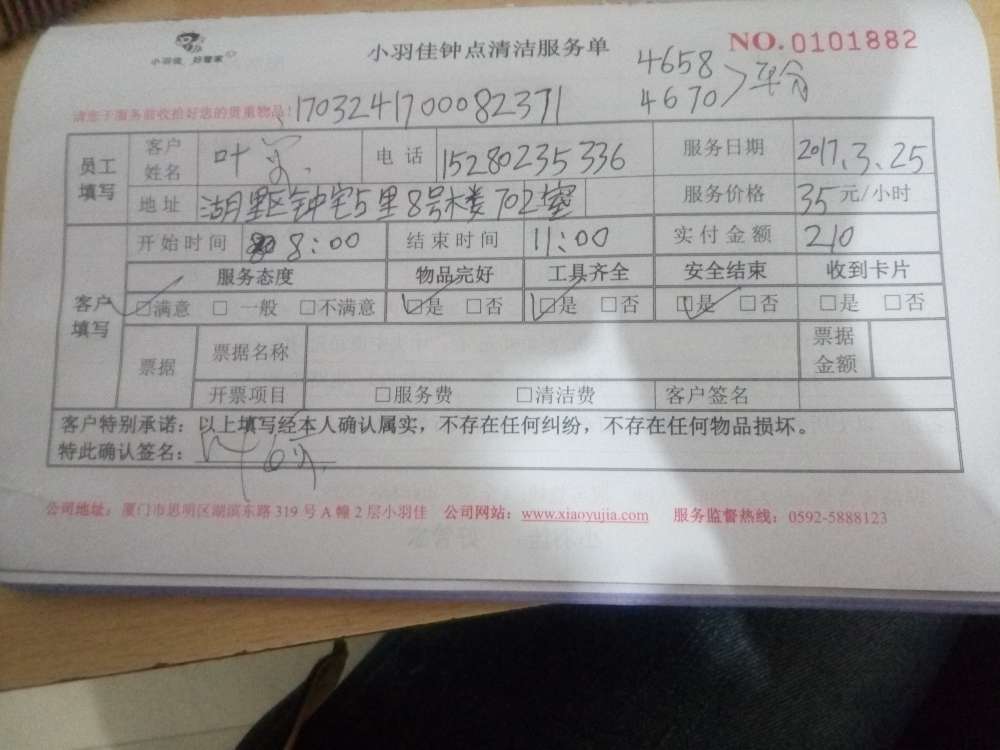 小羽佳 好管家
小羽佳钟点清洁服务单
NO.0101882
4658
4670 平分
请您于服务前收拾好您的贵重物品!
1703241700082371
员工填写 客户姓名 叶 电话 15280235336 服务日期 2017.3.25
地址 湖里区钟宅5里8号楼702室 服务价格 35元/小时
客户填写 开始时间 8:00 结束时间 11:00 实付金额 210
服务态度 物品完好 工具齐全 安全结束 收到卡片
□满意 □一般 □不满意 □是 □否 □是 □否 □是 □否 □是 □否
票据 票据名称 票据金额
开票项目 □服务费 □清洁费 客户签名
客户特别承诺:以上填写经本人确认属实,不存在任何纠纷,不存在任何物品损坏。
特此确认签名:叶
公司地址:厦门市思明区湖滨东路319号A幢2层小羽佳 公司网站:www.xiaoyujia.com 服务监督热线:0592-5888123